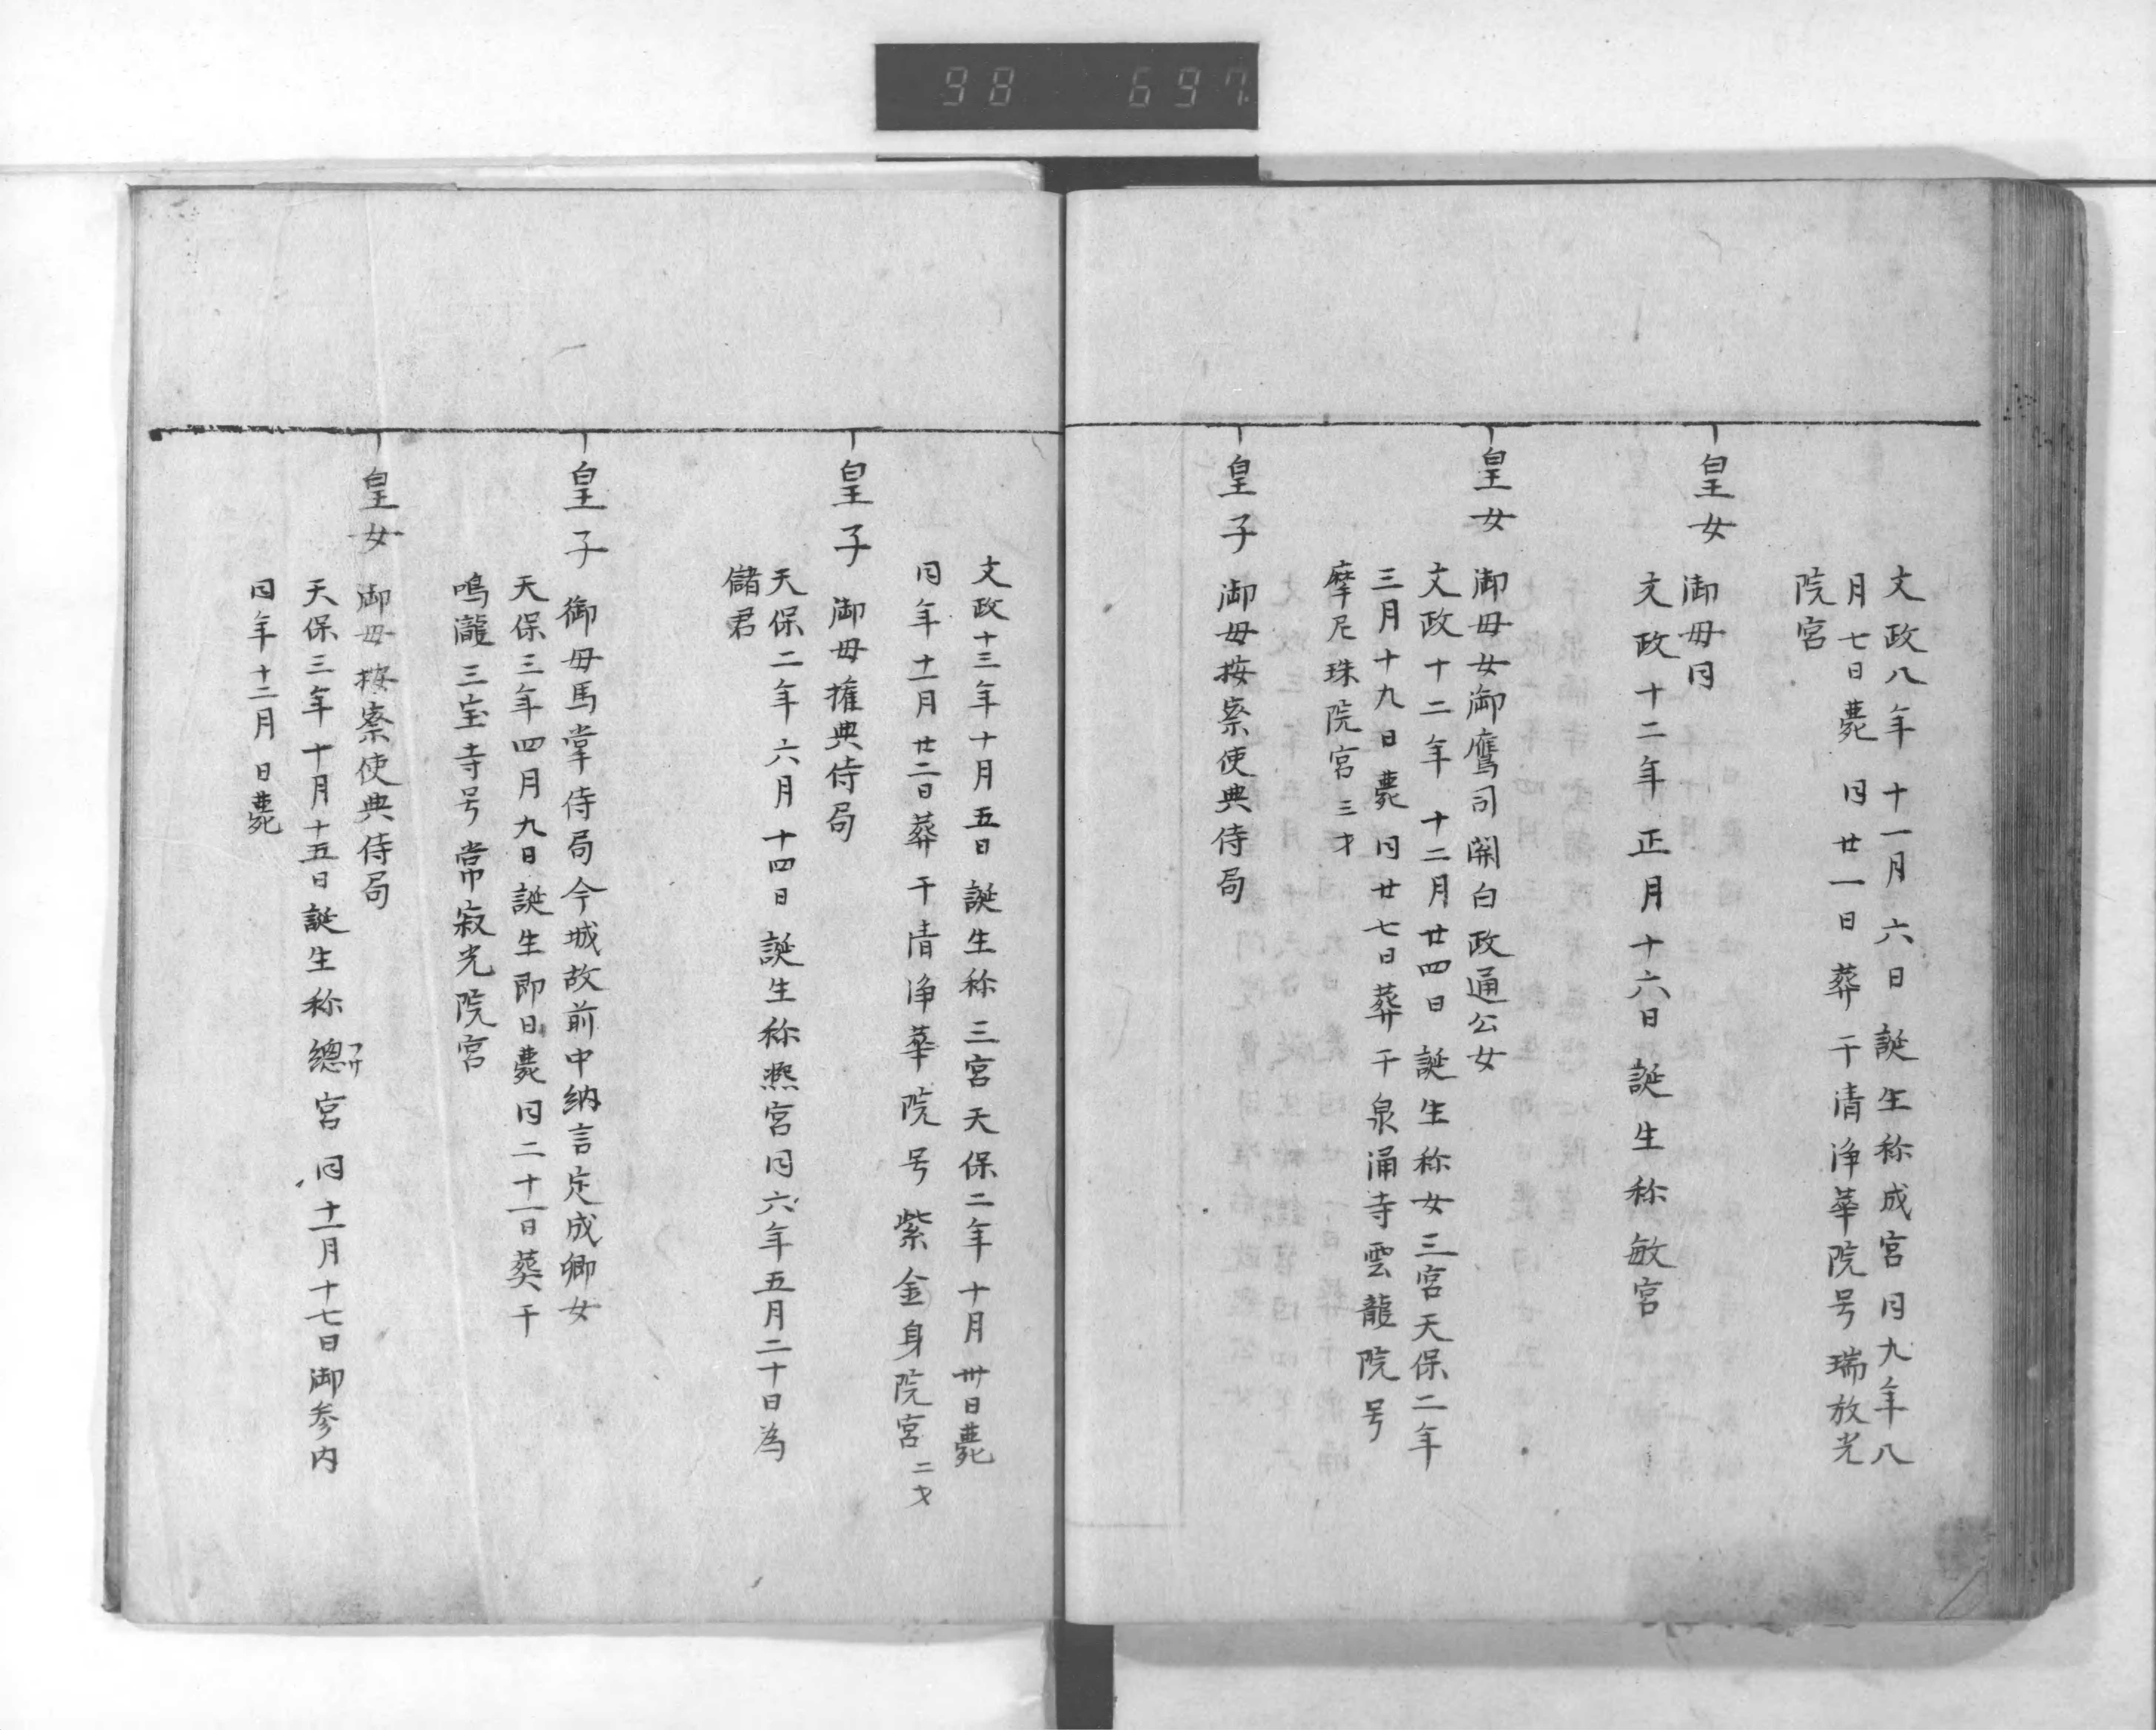 98 697
文政八年十一月六日誕生称成宮同九年八
月七日薨同廿一日葬于清浄華院号瑞放光
院宮
皇女 御母同
文政十二年正月十六日誕生称敏宮
皇女 御母女御鷹司関白政通公女
文政十二年十二月廿四日誕生称女三宮天保二年
三月十九日薨同廿七日葬于泉涌寺雲龍院号
摩尼珠院宮三才
皇子 御母按察使典侍局
文政十三年十月五日誕生称三宮天保二年十月卅日薨
同年十一月廿二日葬于清浄華院号紫金身院宮二才
皇子 御母権典侍局
天保二年六月十四日誕生称煕宮同六年五月二十日為
儲君
皇子 御母馬掌侍局今城故前中納言定成卿女
天保三年四月九日誕生即日薨同二十一日葬于
鳴瀧三宝寺号常寂光院宮
皇女 御母按察使典侍局
天保三年十月十五日誕生称總宮同十一月十七日御参内
フサ
同年十二月 日薨